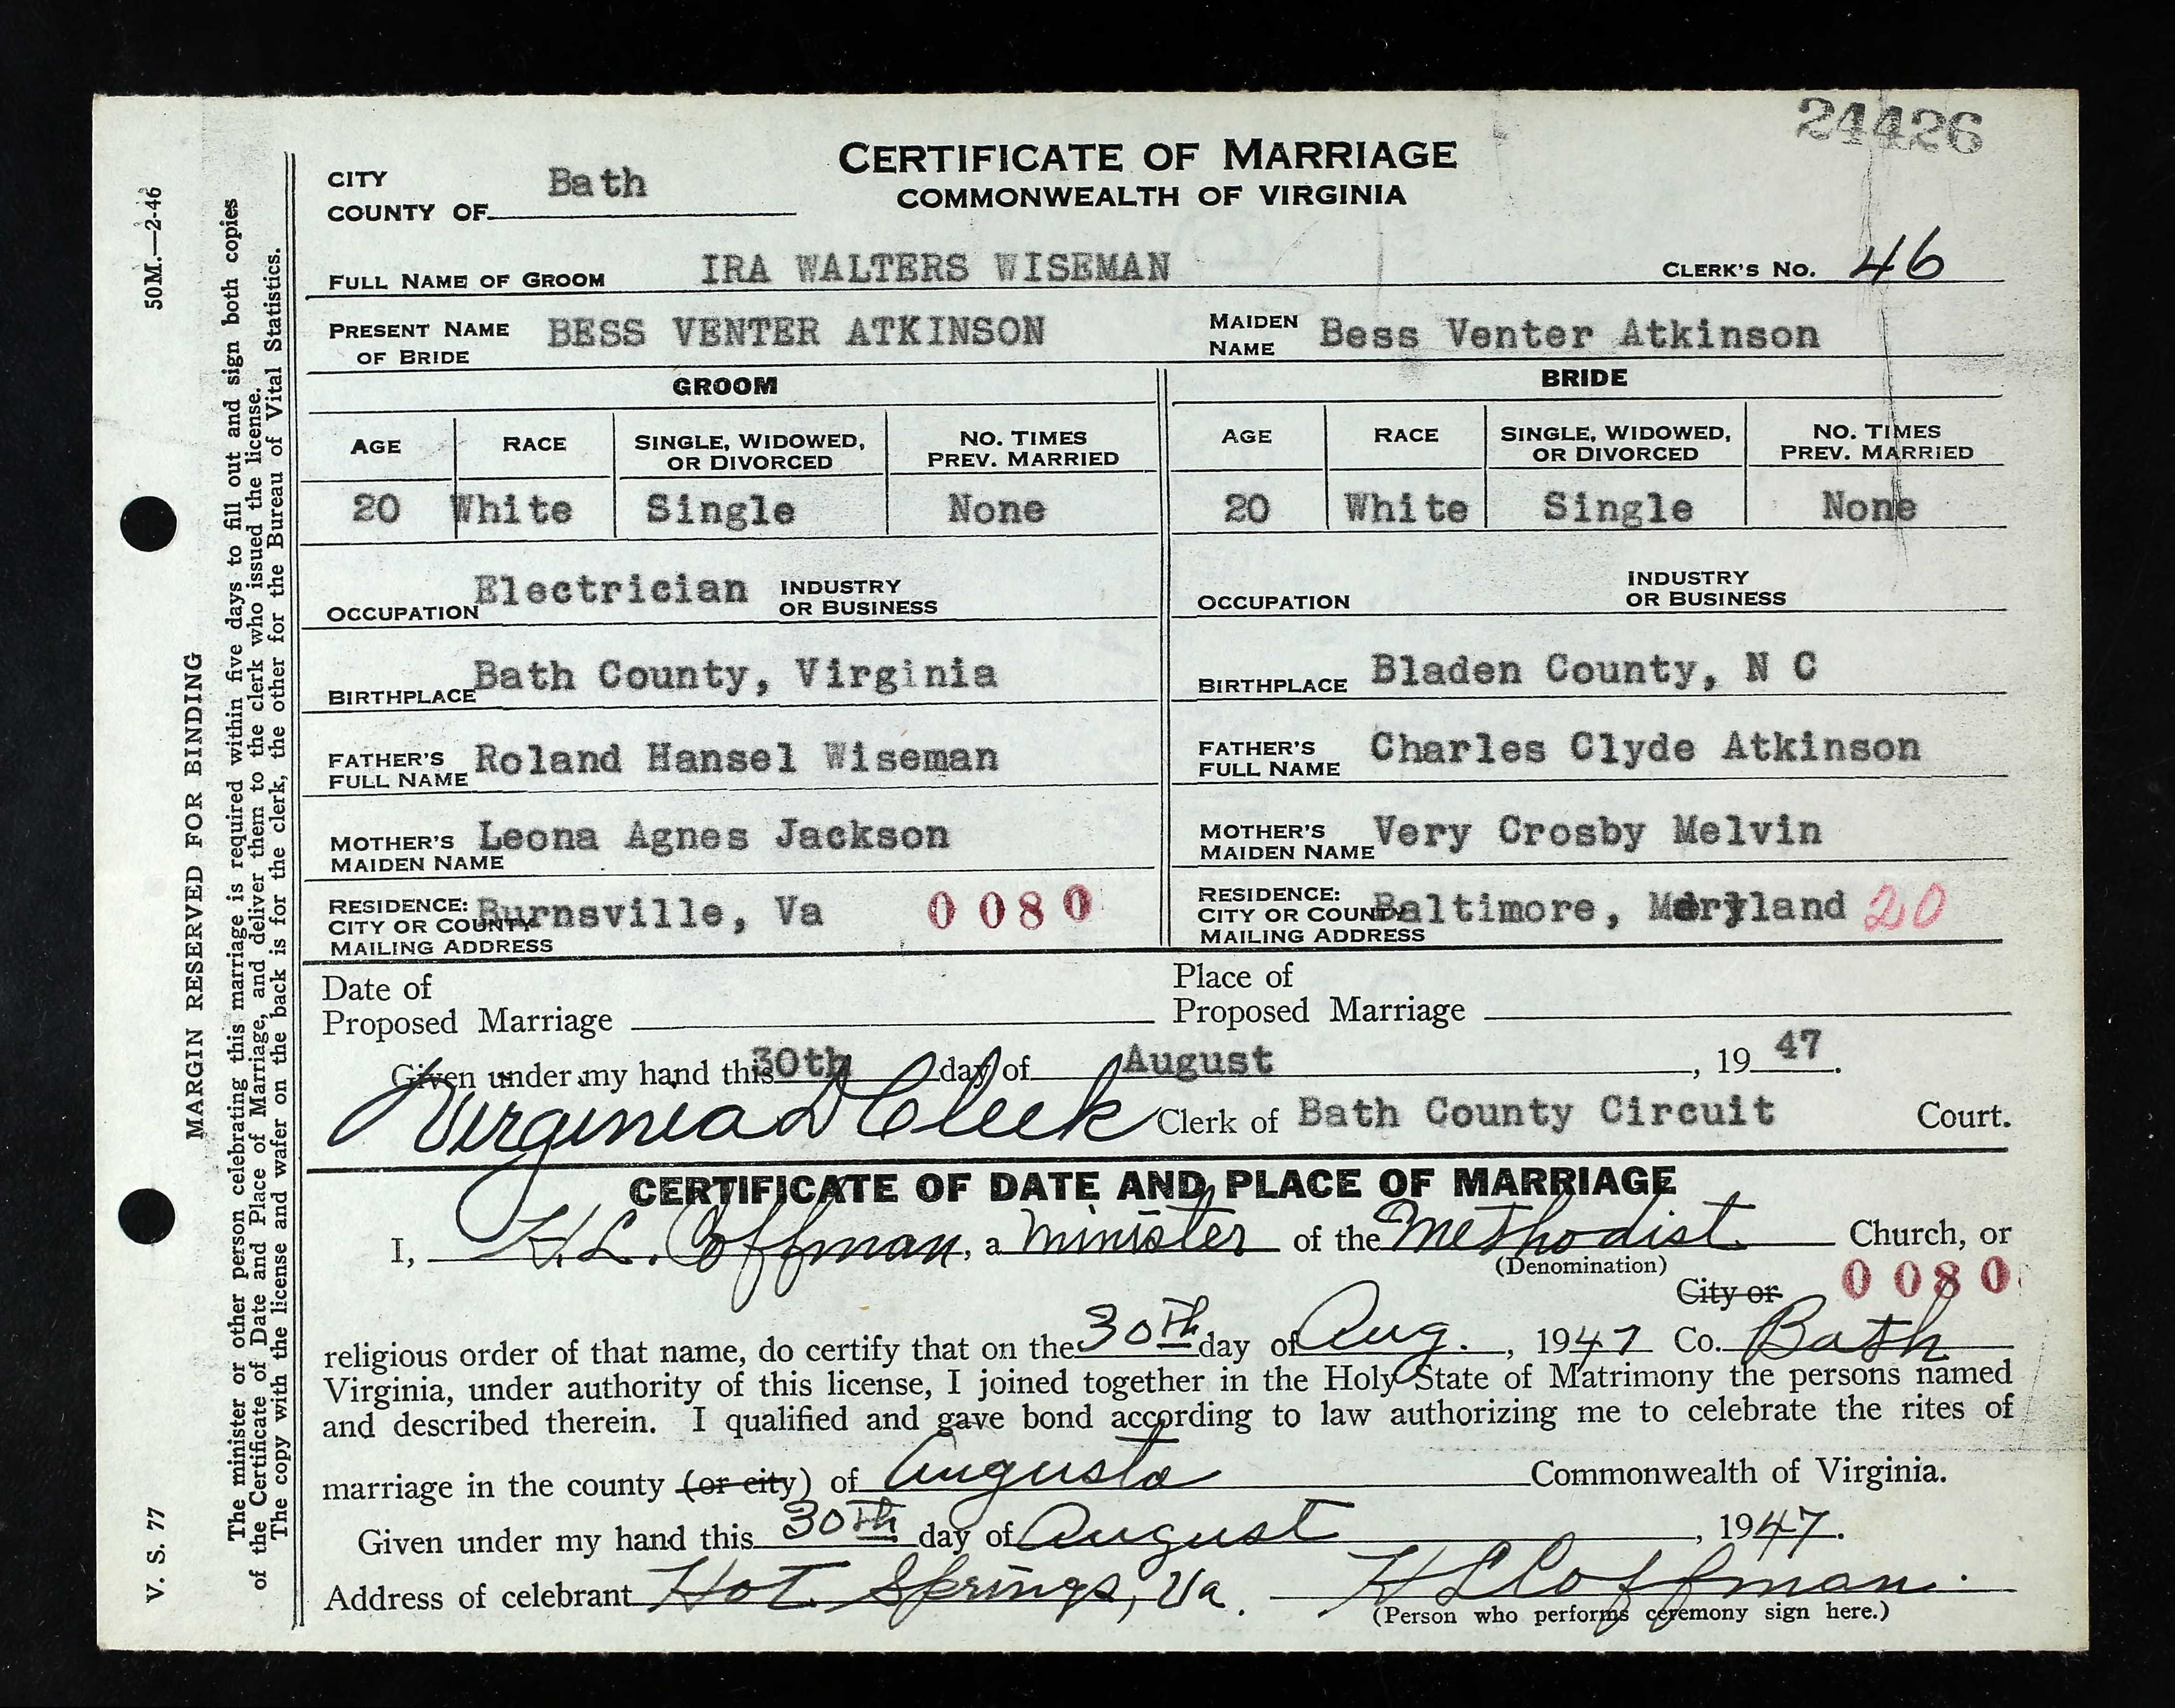 24426
CERTIFICATE OF MARRIAGE
COMMONWEALTH OF VIRGINIA
CITY
COUNTY OF Bath
FULL NAME OF GROOM IRA WALTERS WISEMAN CLERK'S NO. 46
PRESENT NAME OF BRIDE BESS VENTER ATKINSON MAIDEN NAME Bess Venter Atkinson
GROOM BRIDE
AGE RACE SINGLE, WIDOWED, OR DIVORCED NO. TIMES PREV. MARRIED AGE RACE SINGLE, WIDOWED, OR DIVORCED NO. TIMES PREV. MARRIED
20 White Single None 20 White Single None
OCCUPATION Electrician INDUSTRY OR BUSINESS OCCUPATION INDUSTRY OR BUSINESS
BIRTHPLACE Bath County, Virginia BIRTHPLACE Bladen County, N C
FATHER'S FULL NAME Roland Hansel Wiseman FATHER'S FULL NAME Charles Clyde Atkinson
MOTHER'S MAIDEN NAME Leona Agnes Jackson MOTHER'S MAIDEN NAME Very Crosby Melvin
RESIDENCE: CITY OR COUNTY MAILING ADDRESS Burnsville, Va 0080 RESIDENCE: CITY OR COUNTY MAILING ADDRESS Baltimore, Maryland 20
Date of Proposed Marriage Place of Proposed Marriage
Given under my hand this 30th day of August, 1947.
Virginia D Cleek Clerk of Bath County Circuit Court.
CERTIFICATE OF DATE AND PLACE OF MARRIAGE
I, H.L. Coffman, a minister of the Methodist Church, or
(Denomination)
City or 0080
religious order of that name, do certify that on the 30th day of Aug., 1947 Co. Bath
Virginia, under authority of this license, I joined together in the Holy State of Matrimony the persons named
and described therein. I qualified and gave bond according to law authorizing me to celebrate the rites of
marriage in the county (or city) of Augusta Commonwealth of Virginia.
Given under my hand this 30th day of August, 1947.
Address of celebrant Hot Springs, Va. H L Coffman.
(Person who performs ceremony sign here.)
50M.—2-46
MARGIN RESERVED FOR BINDING
V. S. 77
The minister or other person celebrating this marriage is required within five days to fill out and sign both copies
of the Certificate of Date and Place of Marriage, and deliver them to the clerk who issued the license.
The copy with the license and wafer on the back is for the clerk, the other for the Bureau of Vital Statistics.